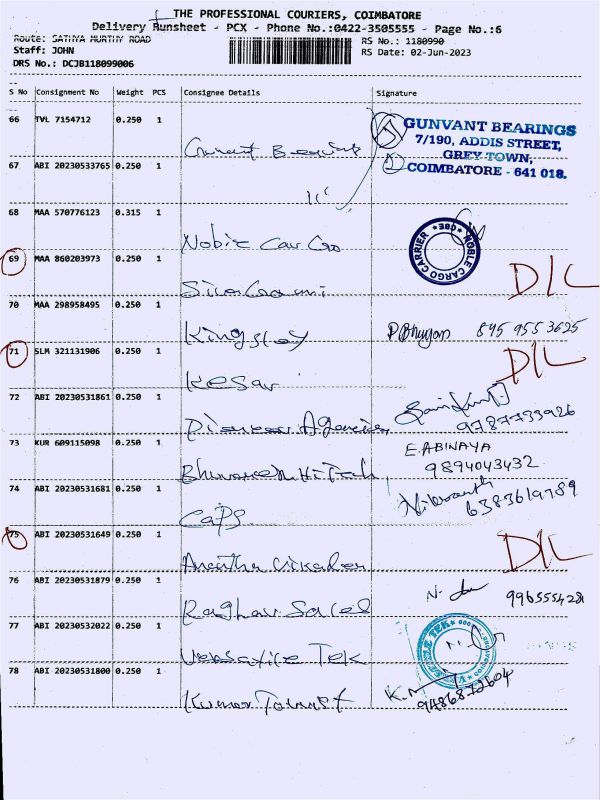 THE PROFESSIONAL COURIERS, COIMBATORE
Delivery Runsheet - PCX - Phone No.:0422-3505555 - Page No.:6
Route: SATHYA MURTHY ROAD RS No.: 1180990
Staff: JOHN RS Date: 02-Jun-2023
DRS No.: DCJB118099006
S No Consignment No Weight PCS Consignee Details Signature
66 TVL 7154712 0.250 1
GUNVANT BEARINGS
7/190, ADDIS STREET,
GREY TOWN,
COIMBATORE - 641 018.
Gunvant Bearings
67 ABI 20230533765 0.250 1
68 MAA 570776123 0.315 1
NOBLE CARGO CARRIER CBE
Noble Car Go
69 MAA 860203973 0.250 1
D/L
70 MAA 298958495 0.250 1
Kingsley
71 SLM 321131906 0.250 1
D/L
Kesar
72 ABI 20230531861 0.250 1
9787733926
Pioneer Agencies
73 KUR 609115098 0.250 1
E.ABINAYA
9894043432
Bhuvanesh HiTech
74 ABI 20230531681 0.250 1
Caps
75 ABI 20230531649 0.250 1
D/L
76 ABI 20230531879 0.250 1
77 ABI 20230532022 0.250 1
Tek
78 ABI 20230531800 0.250 1
9486872604
Kumar